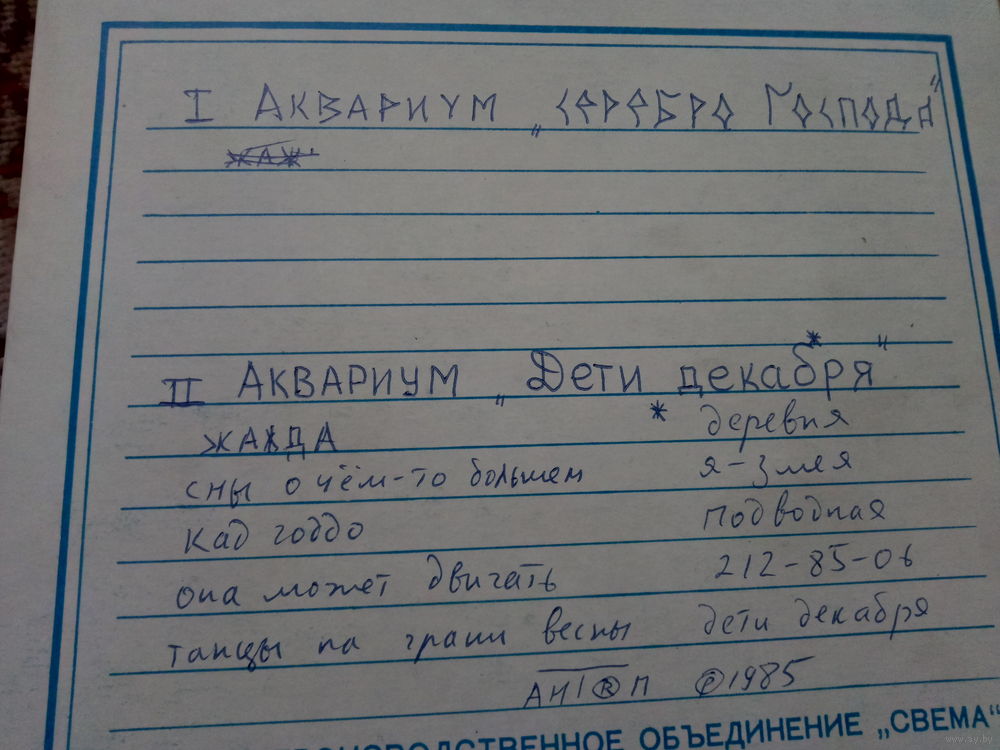 I АКВАРИУМ „СЕРЕБРО ГОСПОДА"
ЖАЖ
II АКВАРИУМ „Дети декабря*"
ЖАЖДА * деревня
сны о чём-то большем я-змея
кад годдо Подводная
она может двигать 212-85-06
танцы на грани весны дети декабря
©1985
ОБЪЕДИНЕНИЕ „СВЕМА"
www.ay.by